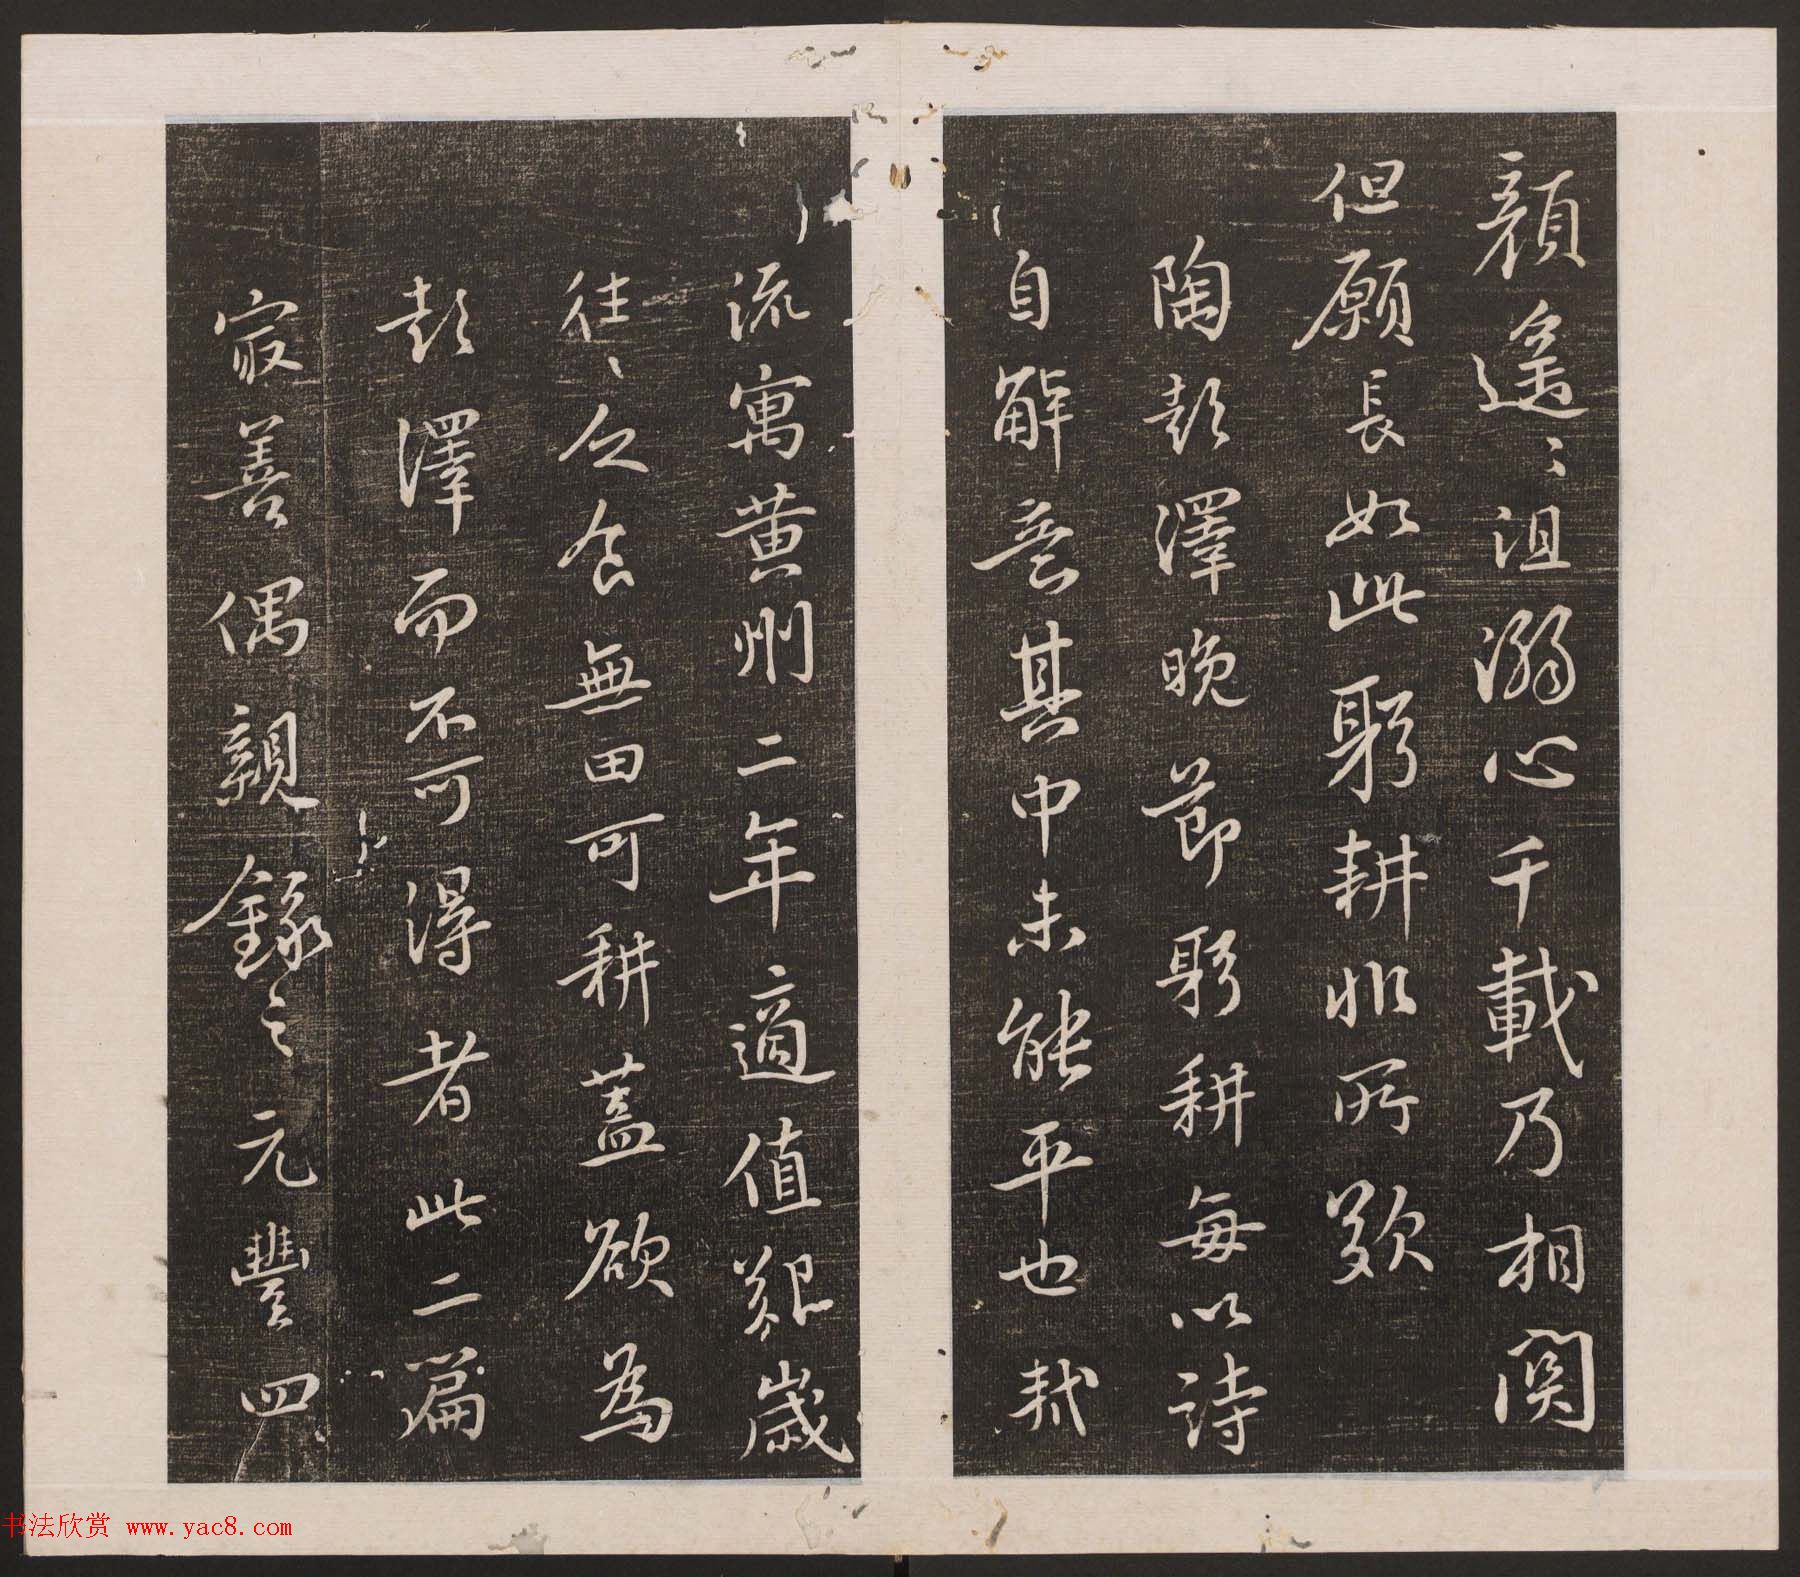 顔遥〻沮溺心千載乃相関
但願長如此躬耕非所歎
陶彭澤晚節躬耕每以詩
自解意其中未能平也軾
流寓黄州二年適值艱歲
往〻乏食無田可耕蓋欲為
彭澤而不可得者此二篇
最善偶親録之元豐四
书法欣赏 www.yac8.com